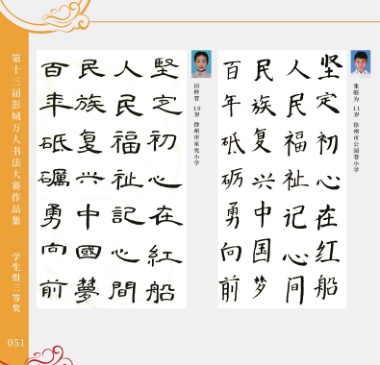 第十三届彭城万人书法大赛作品集
学生组三等奖
051
坚定初心在红船
人民福祉记心间
民族复兴中国梦
百年砥砺勇向前
11岁 徐州市公园巷小学
堅定初心在紅船
人民福祉記心間
民族复兴中國夢
百年砥礪勇向前
10岁 徐州市
小学